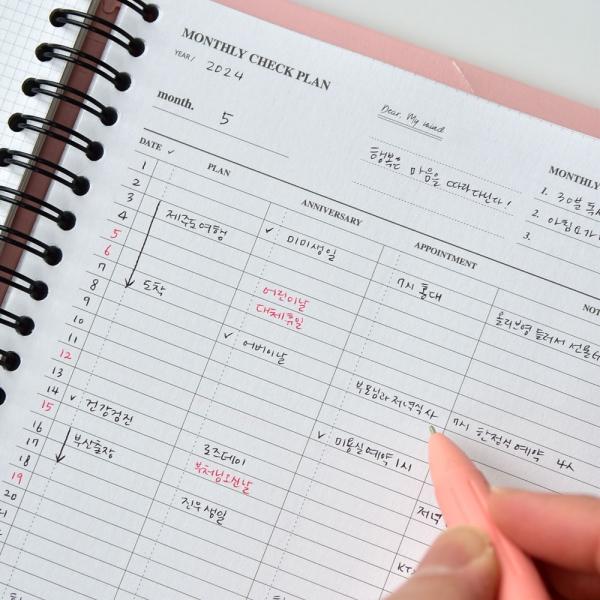 MONTHLY CHECK PLAN
YEAR / 2024
month. 5
Dear. My mind
행복은 마음을 따라다닌다!
MONTHLY
1. 30분 독서
2. 아침요가
3.
DATE ✓ PLAN ANNIVERSARY APPOINTMENT NOT
1
2
3
4 제주도여행 ✓ 미미생일
5 어린이날 7시 홍대
6 대체휴일 올리브영 들러서 선물
7
8 도착 어버이날
9 ✓
10
11
12 부모님과 저녁식사 7시 한정식 예약 4人
13
14 로즈데이 ✓ 미용실예약 1시
15 ✓ 건강검진 부처님오신날
16
17 부산출장 진우생일
18 저녁
19
20 KT